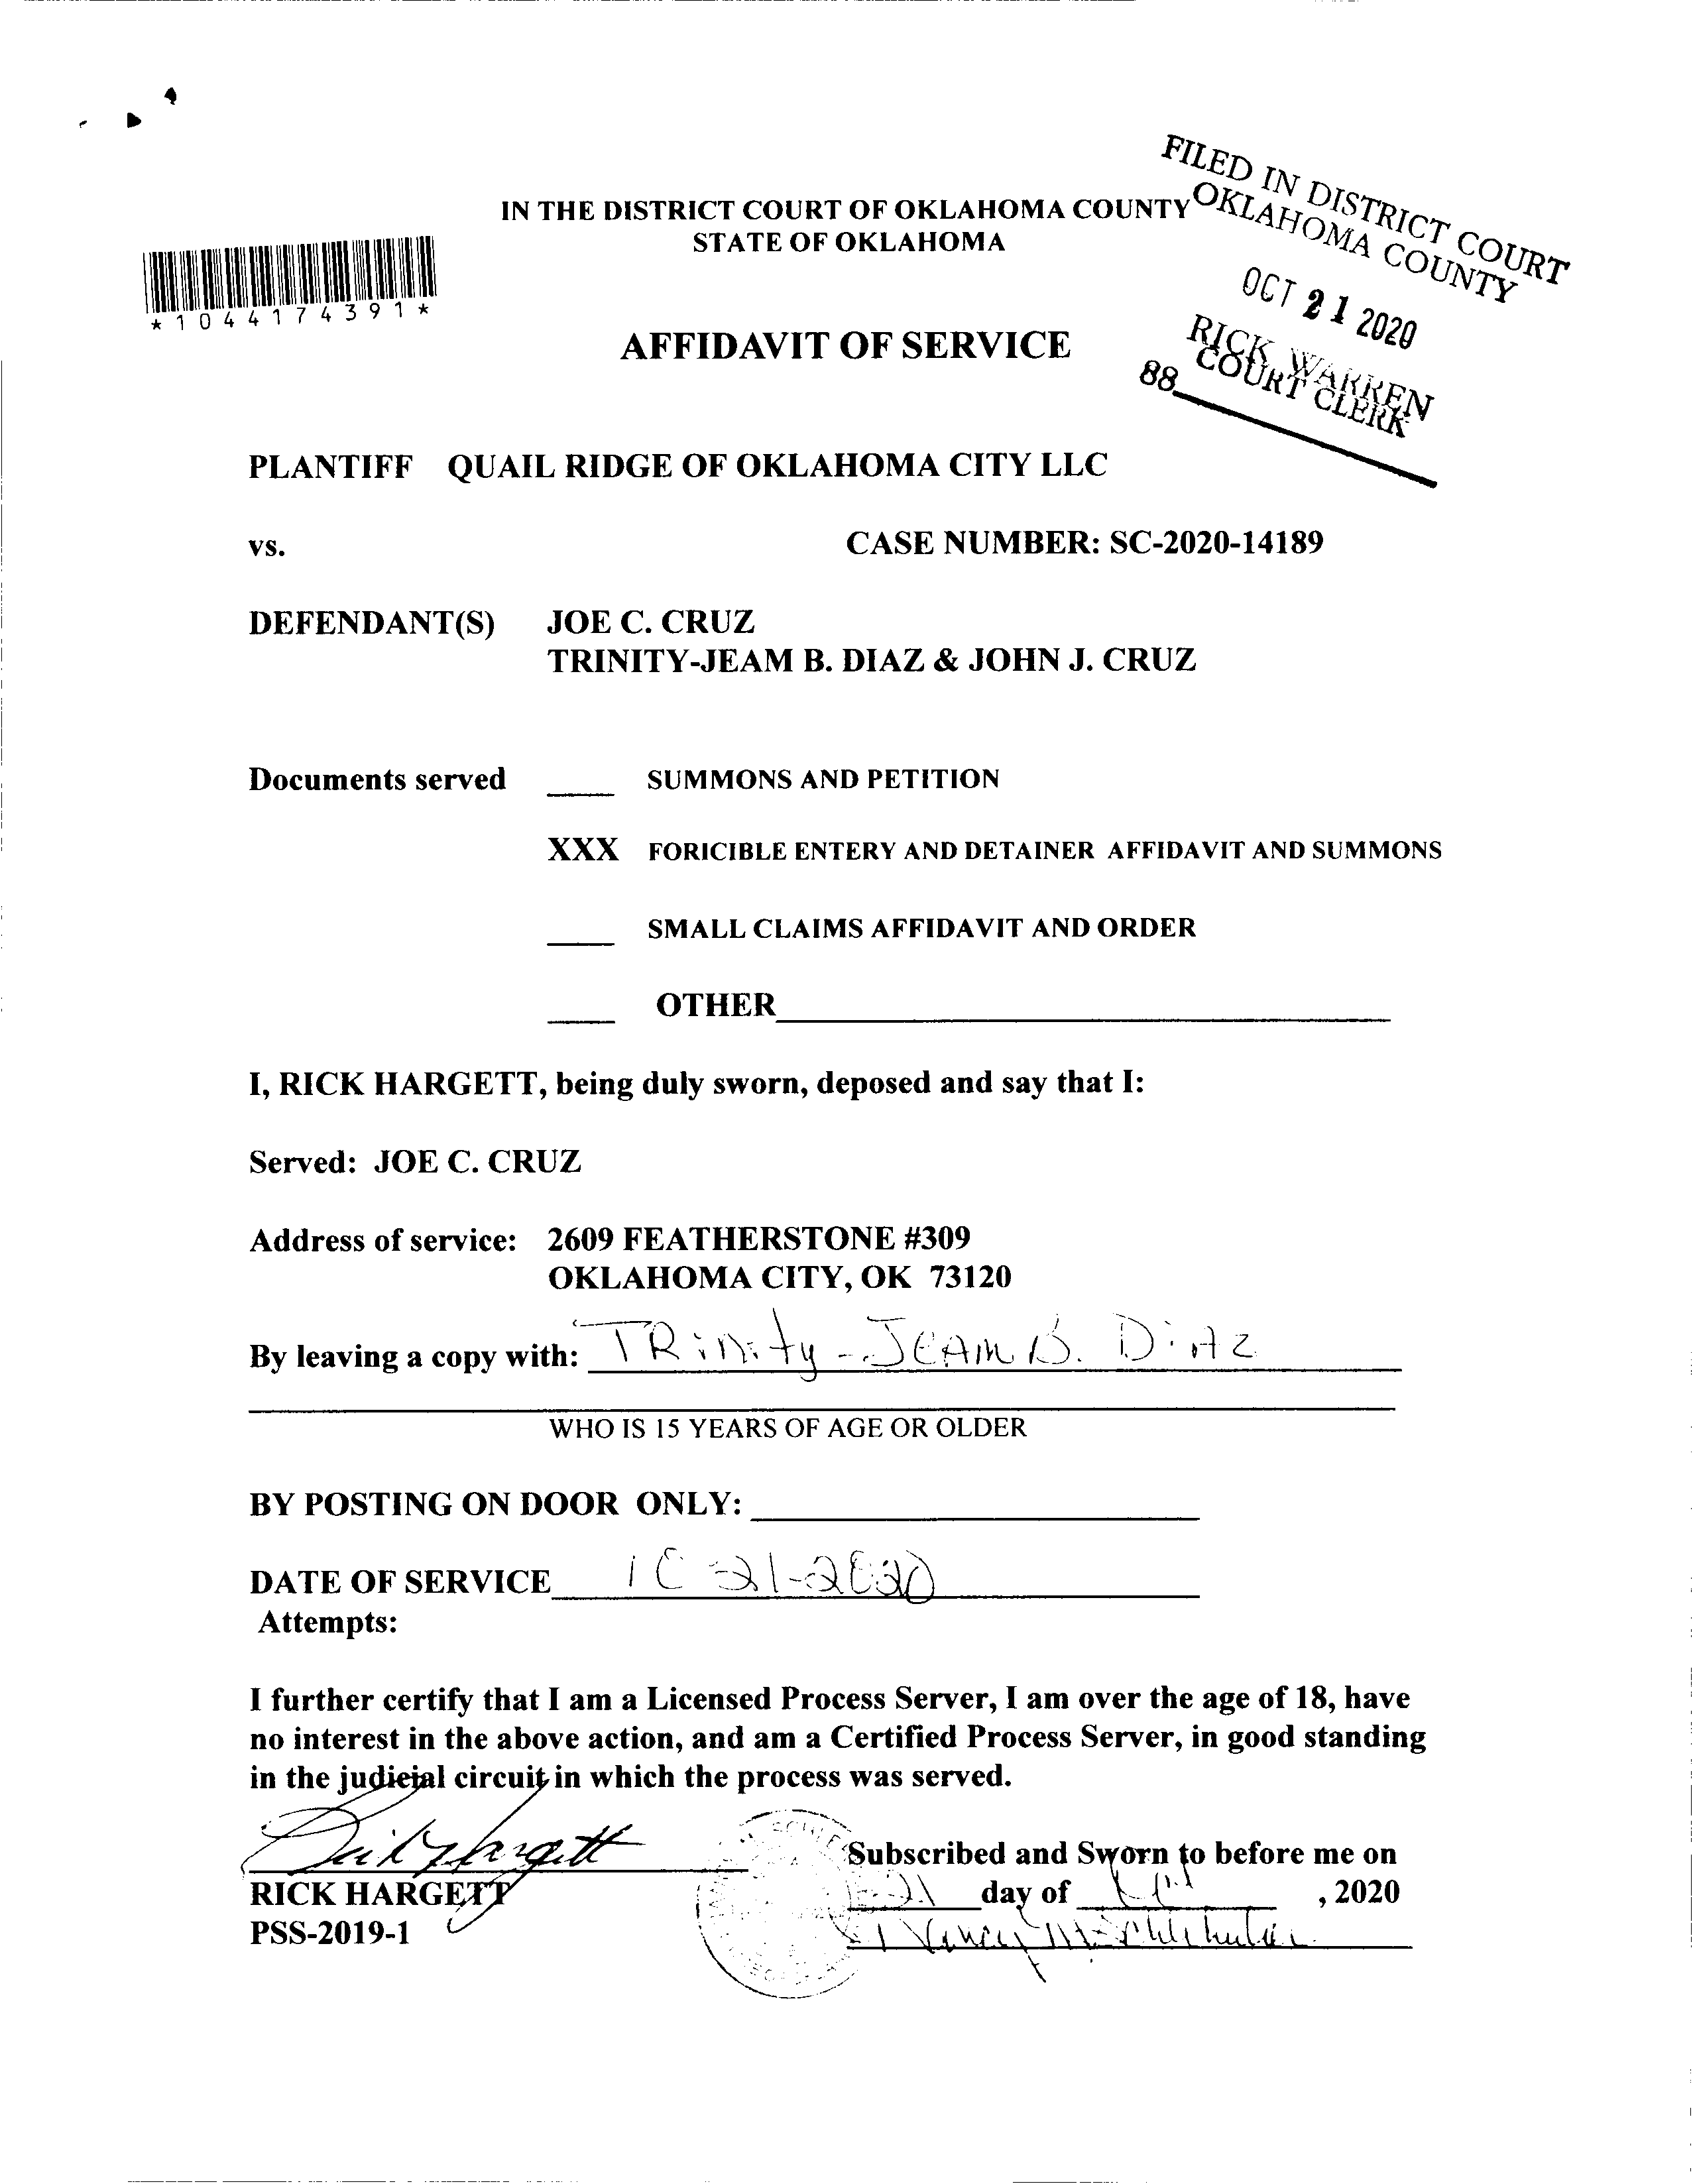 FILED IN DISTRICT COURT
OKLAHOMA COUNTY
OCT 21 2020
RICK WARREN
COURT CLERK
88
IN THE DISTRICT COURT OF OKLAHOMA COUNTY
STATE OF OKLAHOMA
*1044174391*
AFFIDAVIT OF SERVICE
PLANTIFF QUAIL RIDGE OF OKLAHOMA CITY LLC
vs. CASE NUMBER: SC-2020-14189
DEFENDANT(S) JOE C. CRUZ
TRINITY-JEAM B. DIAZ & JOHN J. CRUZ
Documents served ____ SUMMONS AND PETITION
XXX FORICIBLE ENTERY AND DETAINER AFFIDAVIT AND SUMMONS
____ SMALL CLAIMS AFFIDAVIT AND ORDER
____ OTHER____
I, RICK HARGETT, being duly sworn, deposed and say that I:
Served: JOE C. CRUZ
Address of service: 2609 FEATHERSTONE #309
OKLAHOMA CITY, OK 73120
By leaving a copy with: TRinity-JEAM B. DiAz
WHO IS 15 YEARS OF AGE OR OLDER
BY POSTING ON DOOR ONLY: ____
DATE OF SERVICE 10-21-2020
Attempts:
I further certify that I am a Licensed Process Server, I am over the age of 18, have
no interest in the above action, and am a Certified Process Server, in good standing
in the judicial circuit in which the process was served.
Rick Hargett
RICK HARGETT
PSS-2019-1
Subscribed and Sworn to before me on
21 day of , 2020
Nancy